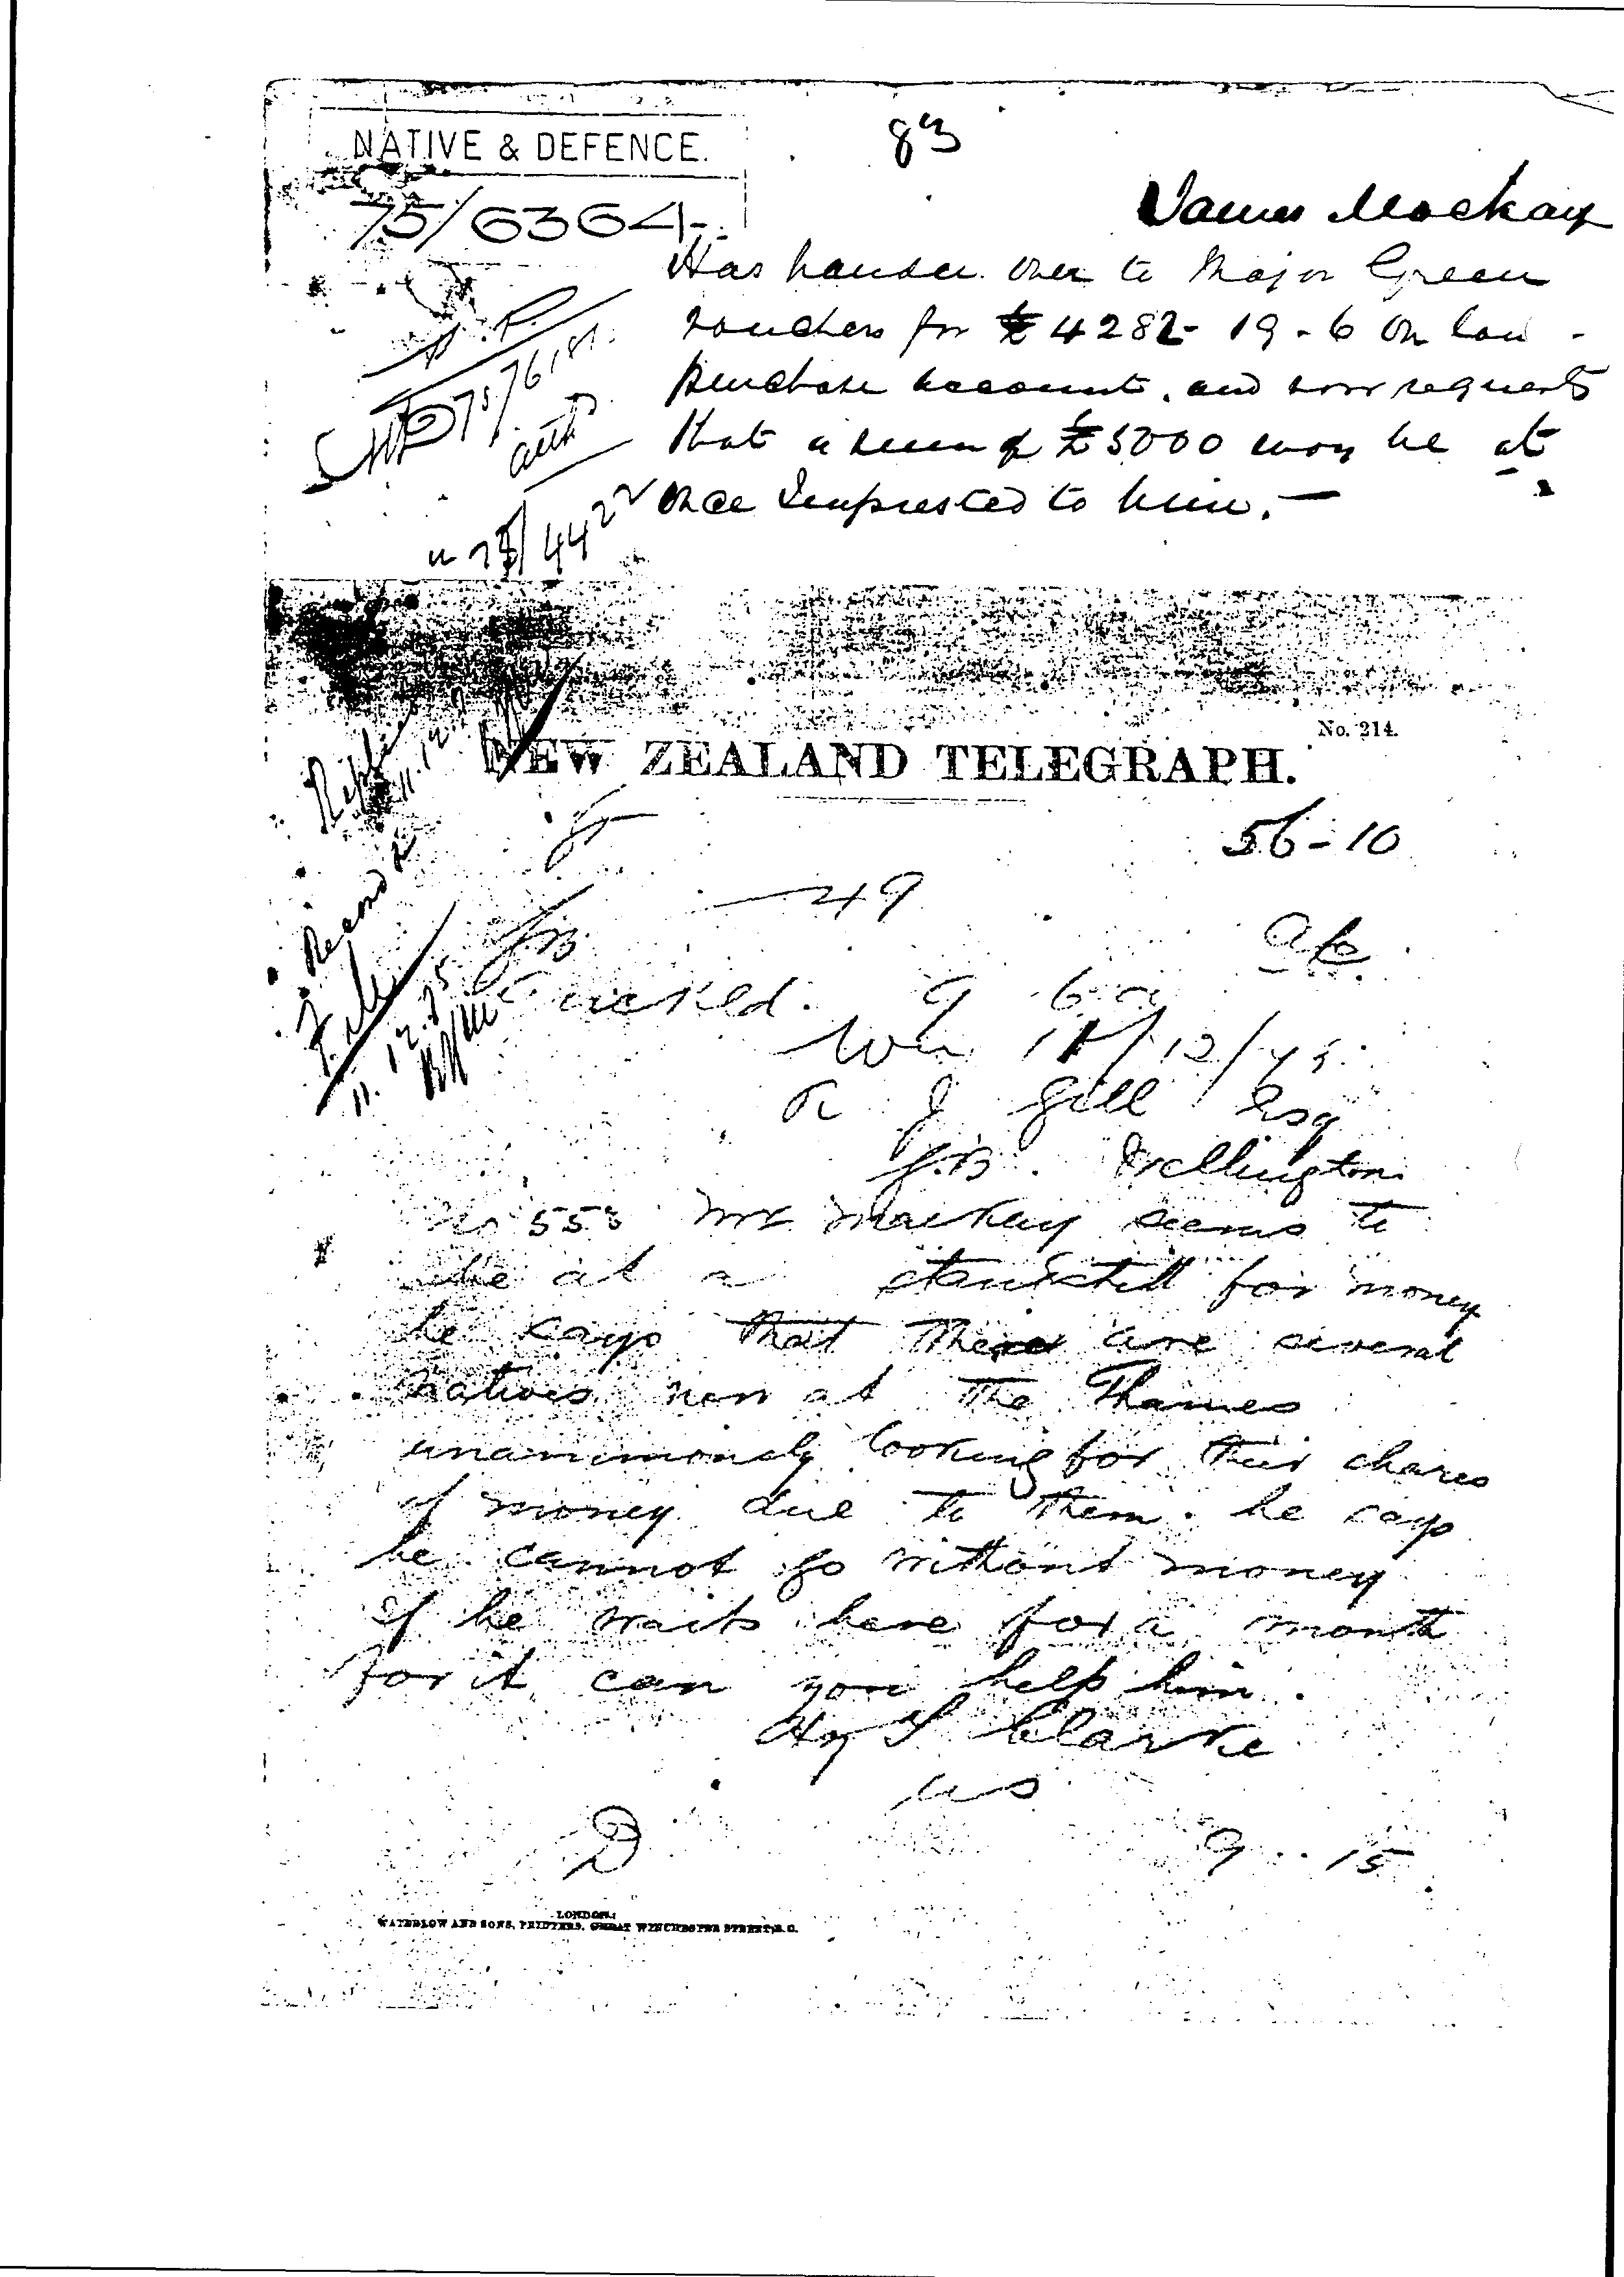 NATIVE & DEFENCE.
83
75/6364
James Mackay
Has handed over to Major Green
vouchers for £4282-19-6 on lan-
purchase account, and now requests
that a sum of £5000 may be at
once Imprested to him.—
75/4422
No. 214.
NEW ZEALAND TELEGRAPH.
56-10
49
Record &
File
11.12.75
9
Wn 11/12/75
R J Gill Esq
G.B. Wellington
No 553 Mr Mackay seems to
be at a standstill for money
he says that there are several
natives now at the Thames
unanimously looking for their shares
of money due to them. he says
he cannot go without money
if he waits here for a month
for it can you help him.
Hy T Clarke
us
D
9..15
LONDON:
WATERLOW AND SONS, PRINTERS, GREAT WINCHESTER STREET, E.C.